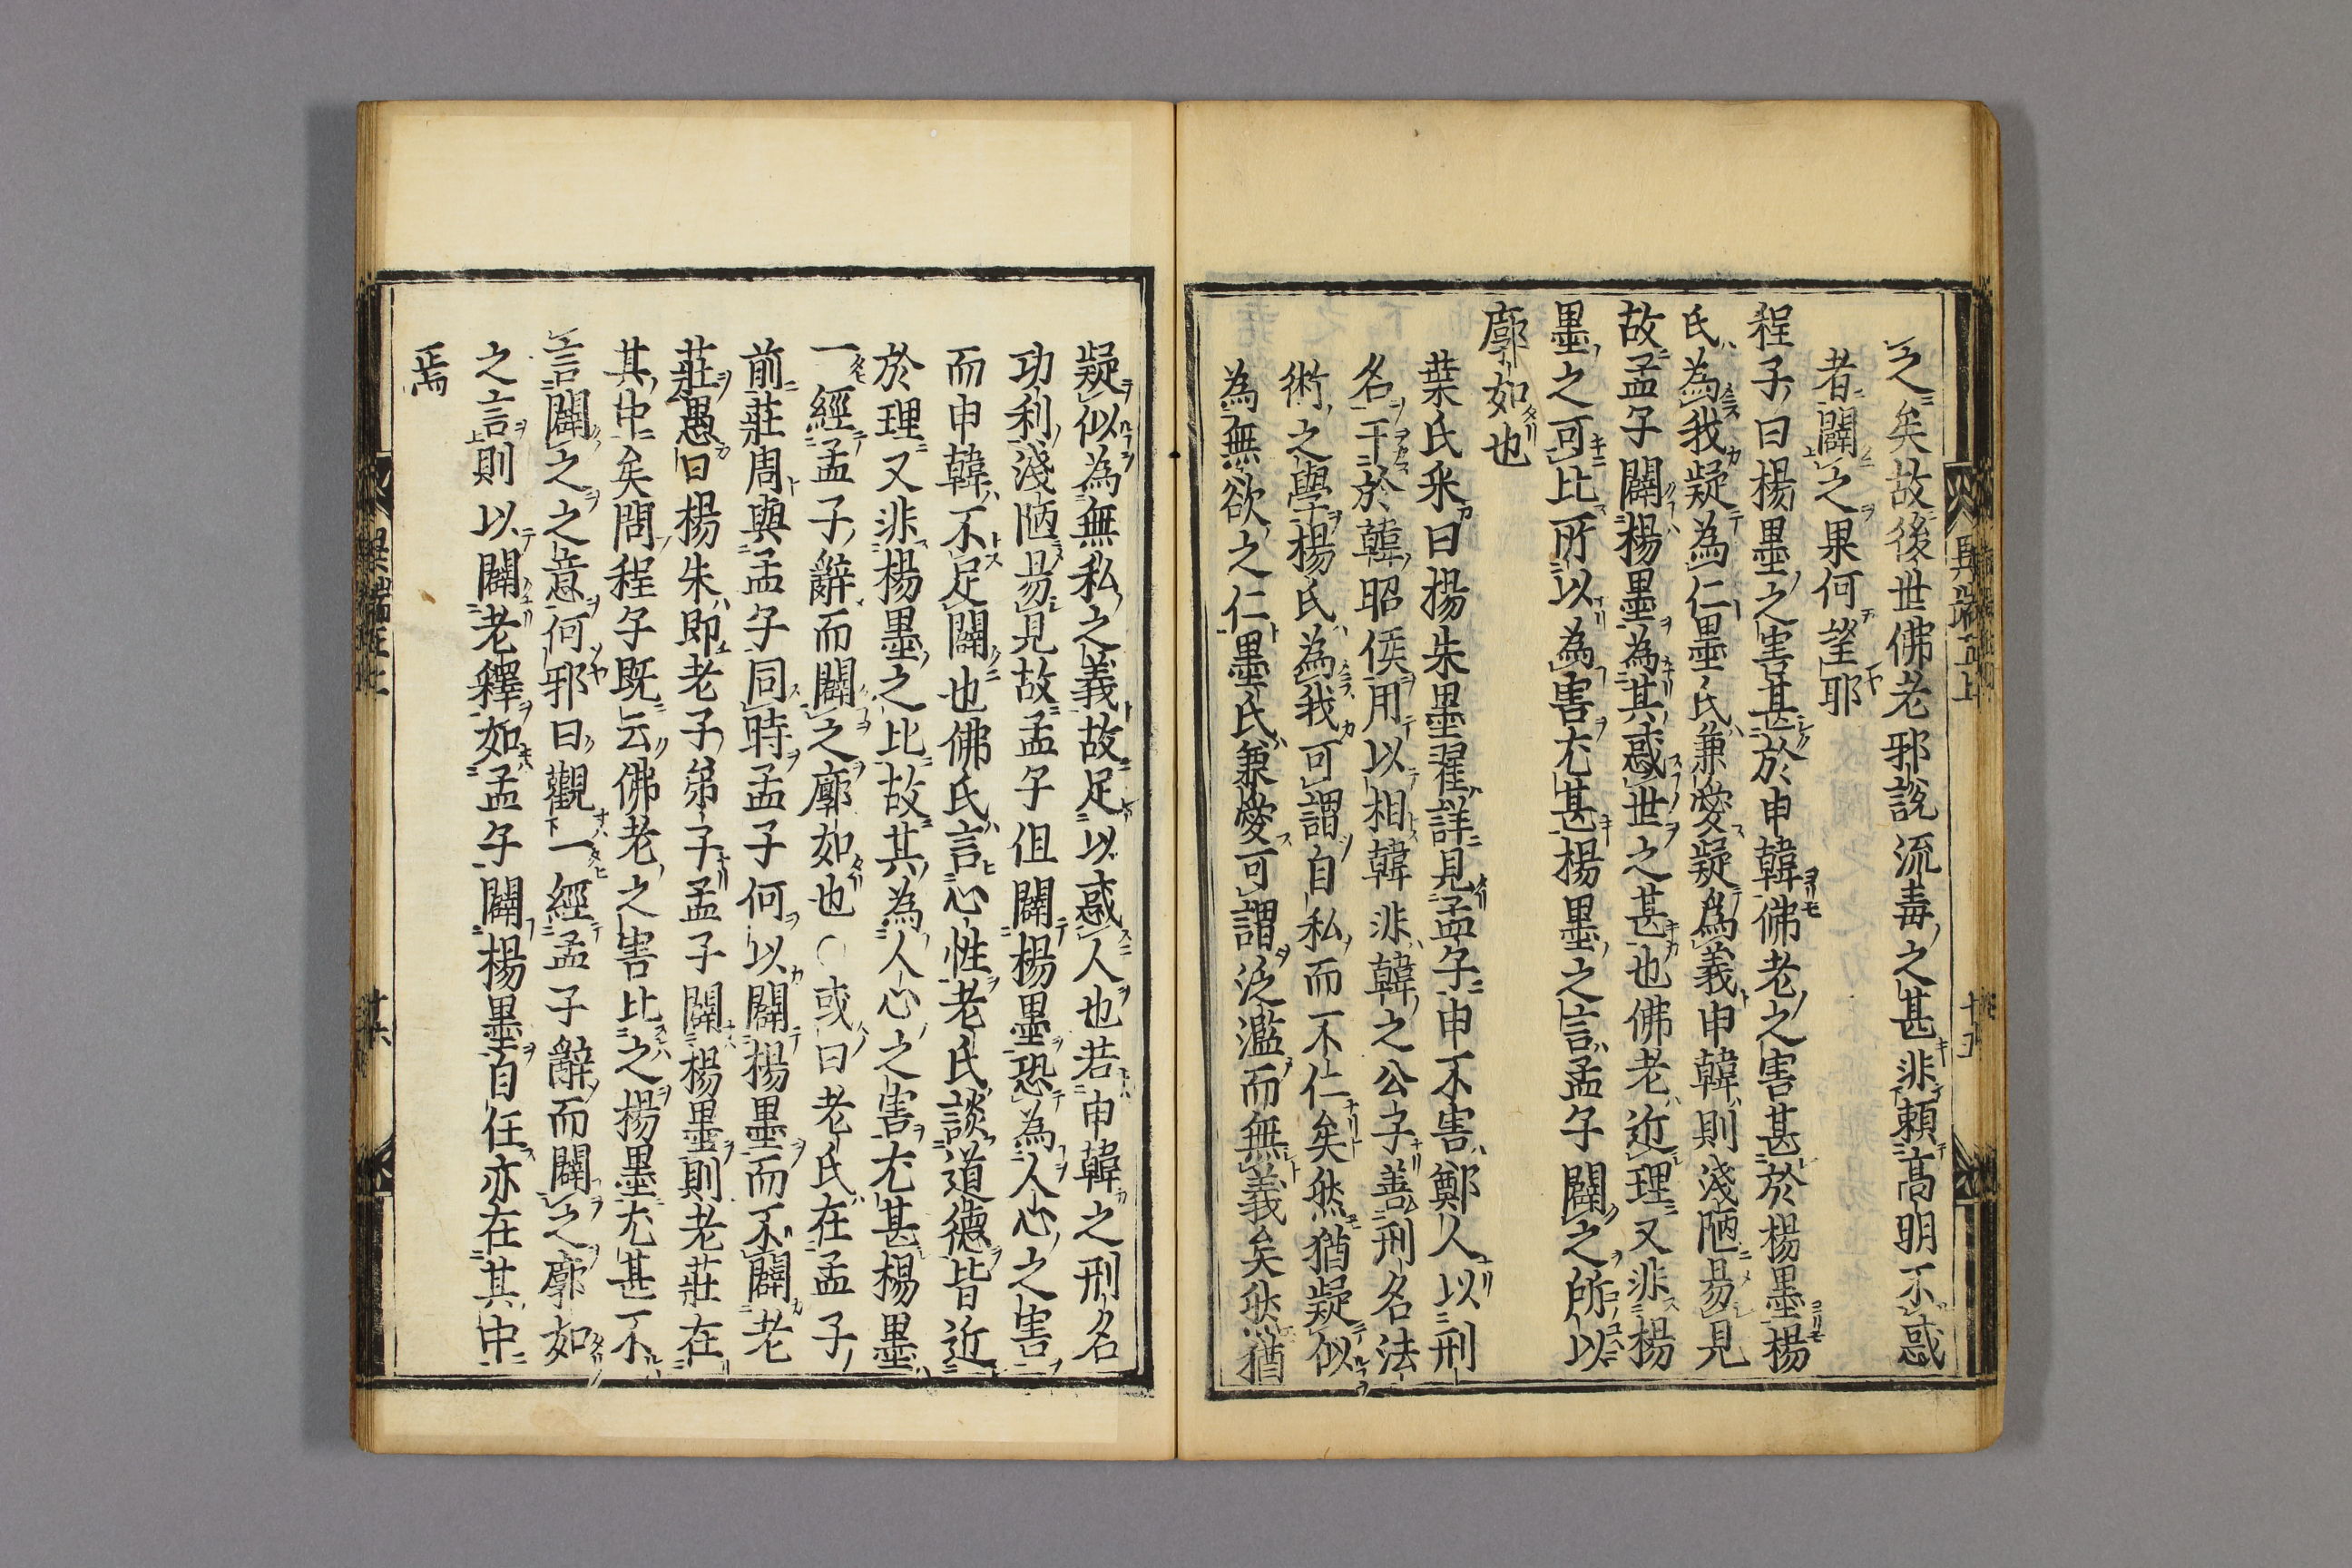 之矣故後世佛老邪說流毒之甚非賴高明不惑
者闢之果何望耶
程子曰楊墨之害甚於申韓佛老之害甚於楊墨楊
氏為我疑為仁墨氏兼愛疑為義申韓則淺陋易見
故孟子闢楊墨為其惑世之甚也佛老近理又非楊
墨之可比所以為害尤甚楊墨之言孟子闢之所以
廓如也
葉氏采曰楊朱墨翟詳見孟子申不害鄭人以刑
名干於韓昭侯用以相韓非韓之公子善刑名法
術之學楊氏為我可謂自私而不仁矣然猶疑似
為無欲之仁墨氏兼愛可謂泛濫而無義矣然猶
疑似為無私之義故足以惑人也若申韓之刑名
功利淺陋易見故孟子但闢楊墨恐為人心之害
而申韓不足闢也佛氏言心性老氏談道德皆近
於理又非楊墨之比故其為人心之害尤甚楊墨
一經孟子辭而闢之廓如也○或曰老氏在孟子
前莊周與孟子同時孟子何以闢楊墨而不闢老
莊愚曰楊朱即老子弟子孟子闢楊墨則老莊在
其中矣問程子既云佛老之害比之楊墨尤甚不
言闢之之意何邪曰觀一經孟子辭而闢之廓如
之言則以闢老釋如孟子闢楊墨自任亦在其中
焉